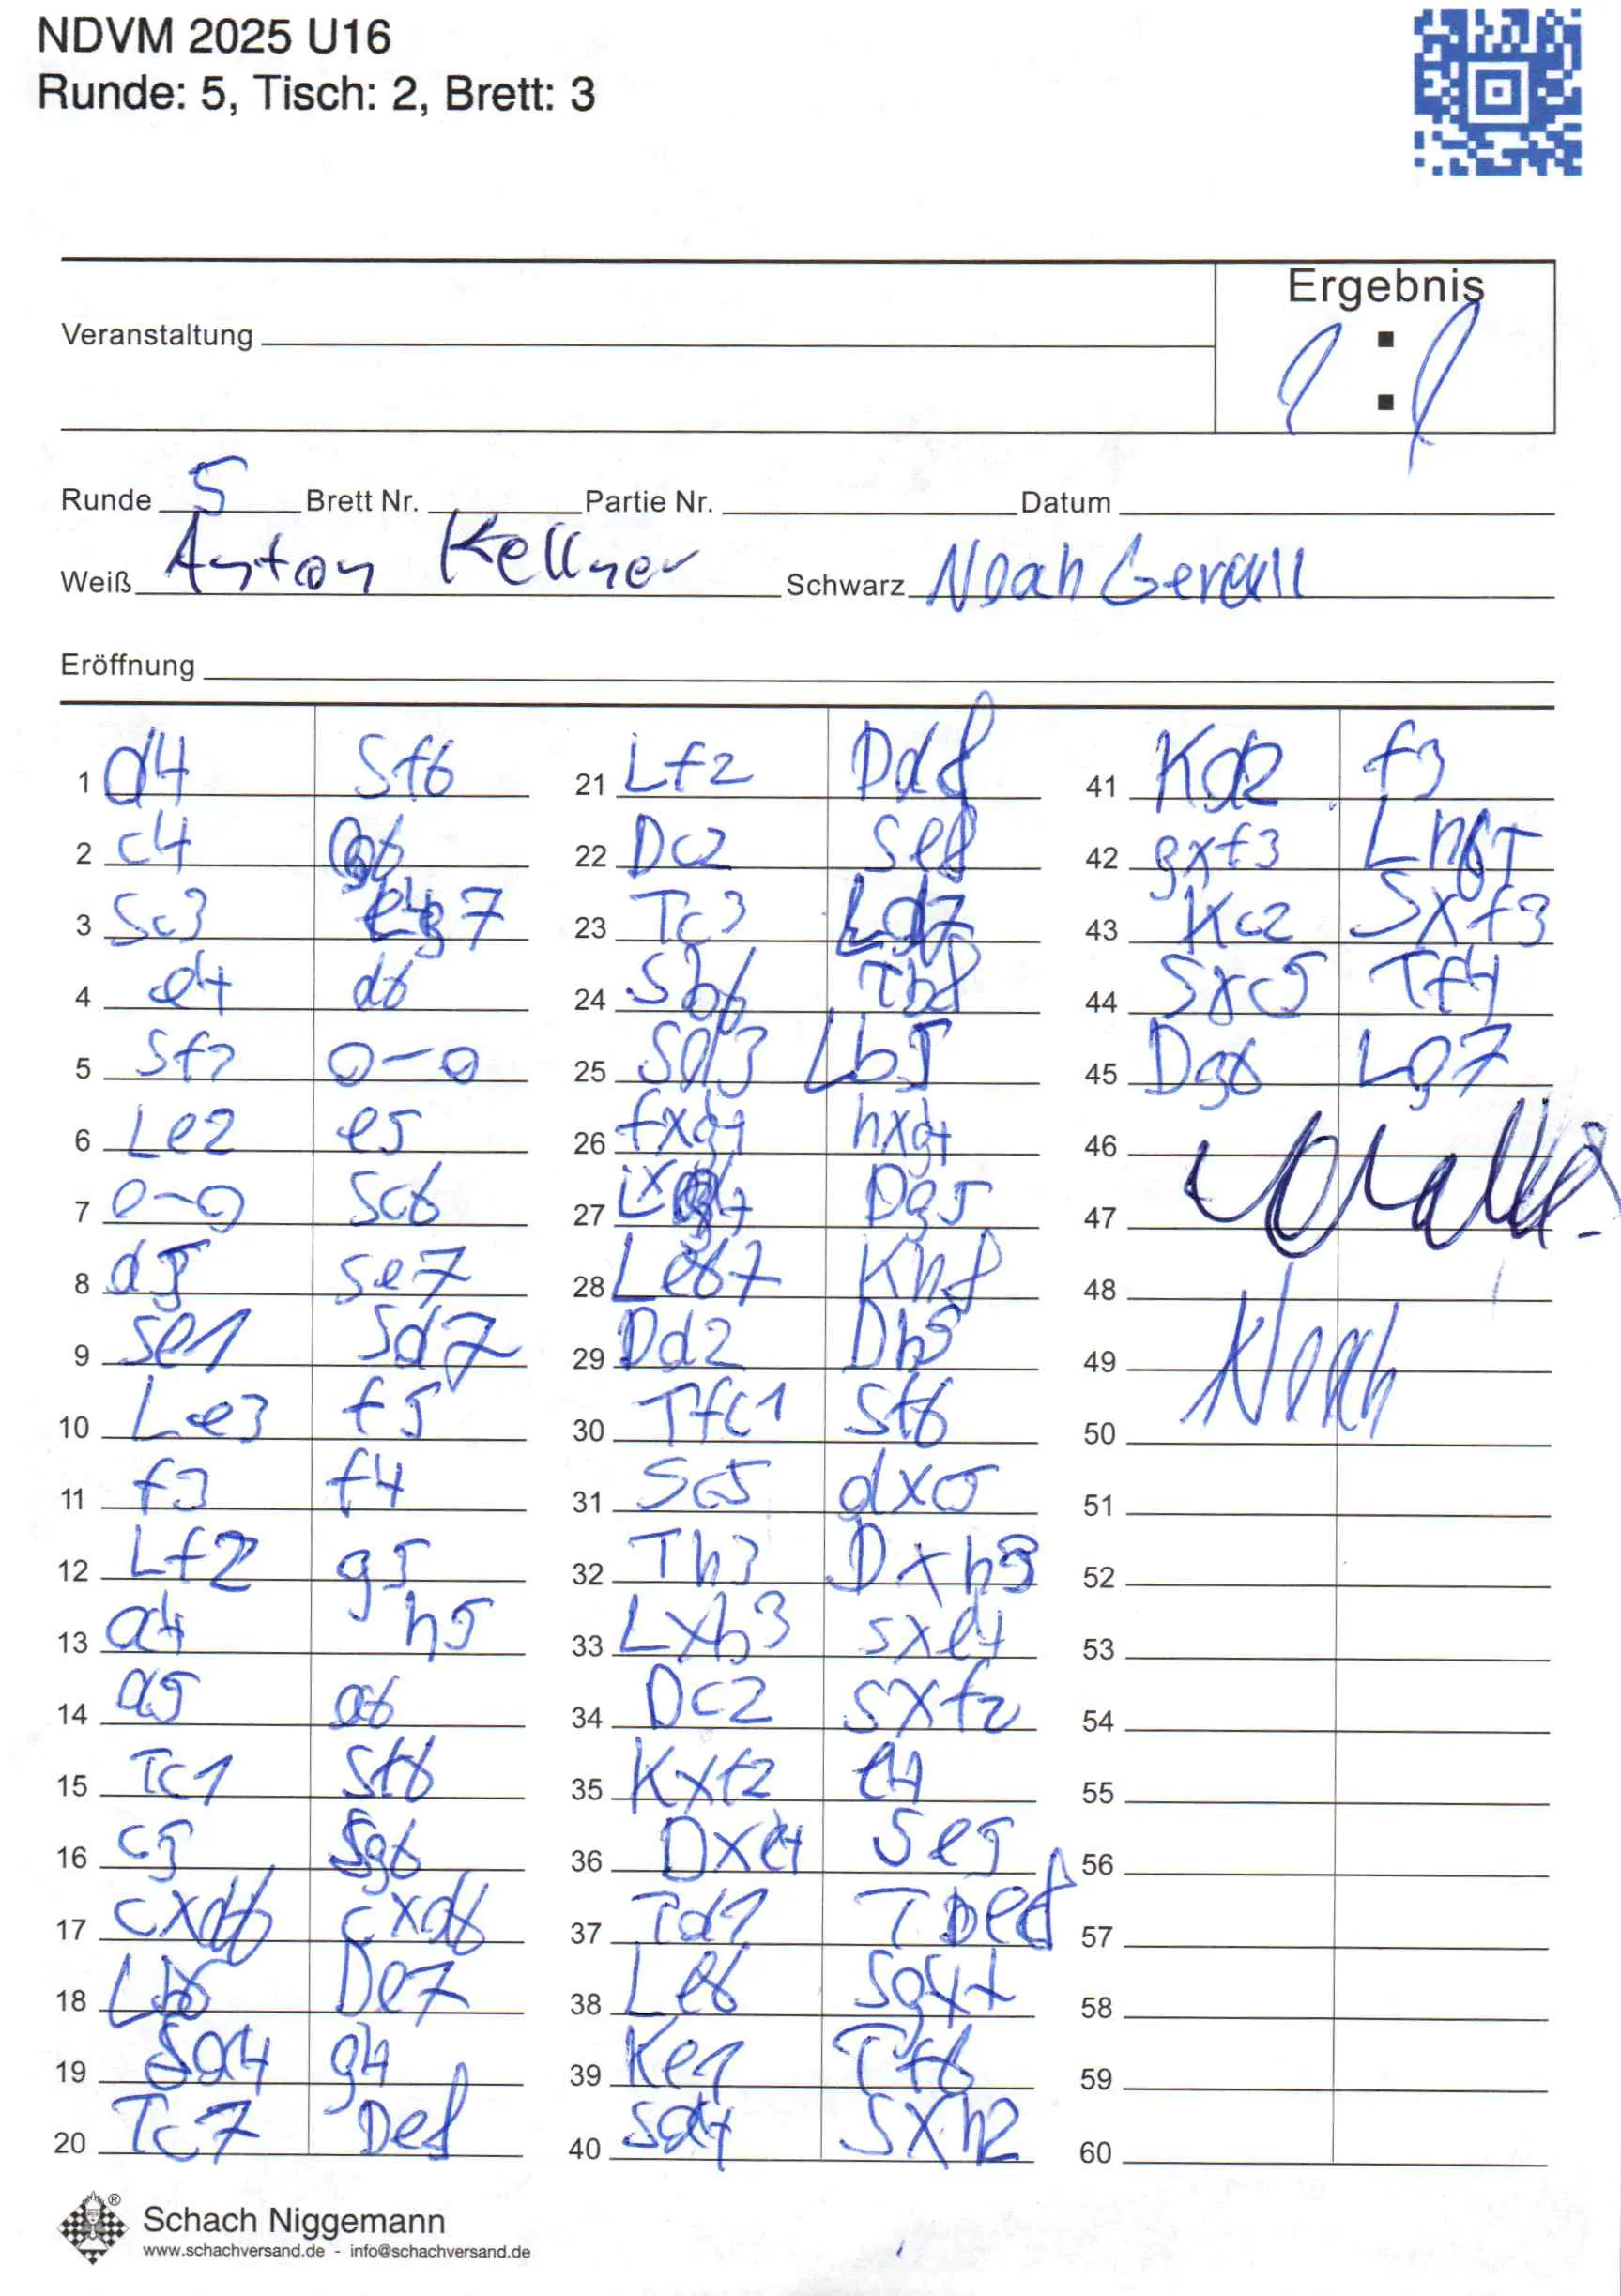 NDVM 2025 U16
Runde: 5, Tisch: 2, Brett: 3
Ergebnis
Veranstaltung
:
Runde 5 Brett Nr. Partie Nr. Datum
Weiß Anton Kellner Schwarz Noah
Eröffnung
1 d4 Sf6
2 c4 g6
3 Sc3 Lg7
4 e4 d6
5 Sf3 0-0
6 Le2 e5
7 0-0 Sc6
8 d5 Se7
9 Se1 Sd7
10 Le3 f5
11 f3 f4
12 Lf2 g5
13 a4 h5
14 a5 a6
15 Tc1 Sf6
16 c5 Sg6
17 cxd6 cxd6
18 Lb6 De7
19 Sa4 g4
20 Tc7 De8
21 Lf2 Dd8
22 Dc2 Se8
23 Tc3 Ld7
24 Sb6 Tb8
25 Sd3 Lb5
26 fxg4 hxg4
27 Lxg4 Dg5
28 Le6+ Kh8
29 Dd2 Dh5
30 Tfc1 Sf6
31 Sc5 dxc5
32 Th3 Dxh3
33 Lxh3 Sxe4
34 Dc2 Sxf2
35 Kxf2 e4
36 Dxe4 Se5
37 Td1 Tbe8
38 Le6 Sg4+
39 Ke1 Tf6
40 Sa4 Sxh2
41 Kd2 f3
42 gxf3 Lh6+
43 Kc2 Sxf3
44 Sxc5 Tf4
45 Dg6 Lg7
46
47
48
49 Noah
50
51
52
53
54
55
56
57
58
59
60
Schach Niggemann
www.schachversand.de - info@schachversand.de